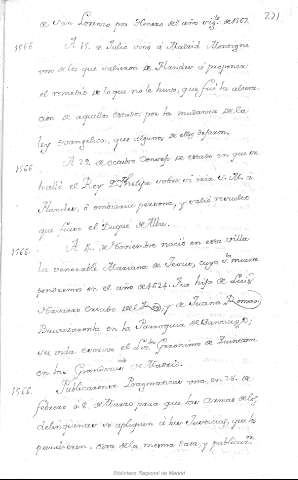 221
de San Lorenzo por Henero del año sigte. de 1567.
1566 A 15. de Julio vino á Madrid Montigne
uno de los que salieron de Flandes á proponer
el remedio de lo que no le huvo, que fué la altera-
cion de aquellos estados por la mudanza de la
ley evangelica, que algunos de ellos dejaron.
1566 A 29. de octubre Consejo de estado en que se
halló el Rey Dn. Phelipe sobre si iria S. M. a
Flandes, ó embiaria persona, y salió resuelto
que fuese el Duque de Alba.
1566. A de Noviembre nació en esta villa
la venerable Mariana de Jesus, cuya sta. muerte
pondremos en el año de 1624. Fue hija de Luis
Navarro Criado del y de Juana Romero,
Bautizaronla en la Parroquia de Santiago;
su vida escrive el Ldo. Geronimo de Quintana
en las Grandezas de Madrid.
1566. Publicaronse Pragmaticas una, en 26. de
febrero á 2. de Marzo para que las Armas de los
delinquentes se apliquen á las Justicias, que los
prendieren. otra de la mesma data, y publicon.
Biblioteca Regional de Madrid